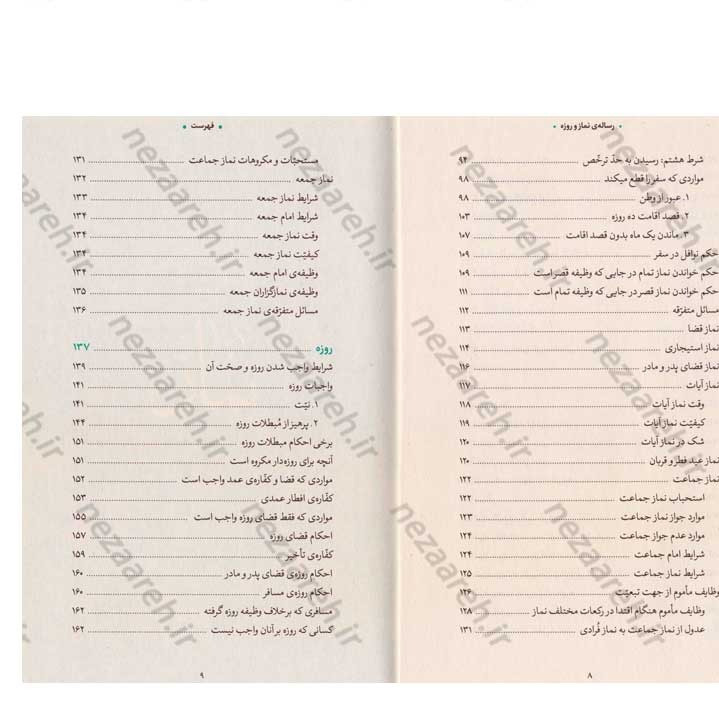 • رساله‌ی نماز و روزه •
شرط هشتم: رسیدن به حدّ ترخّص ۹۴
مواردی که سفر را قطع میکند ۹۸
۱. عبور از وطن ۹۸
۲. قصد اقامت ده روزه ۱۰۳
۳. ماندن یک ماه بدون قصد اقامت ۱۰۷
حکم نوافل در سفر ۱۰۹
حکم خواندن نماز تمام در جایی که وظیفه قصر است ۱۰۹
حکم خواندن نماز قصر در جایی که وظیفه تمام است ۱۱۱
مسائل متفرّقه ۱۱۲
نماز قضا ۱۱۳
نماز استیجاری ۱۱۴
نماز قضای پدر و مادر ۱۱۶
نماز آیات ۱۱۷
وقت نماز آیات ۱۱۸
کیفیّت نماز آیات ۱۱۹
شک در نماز آیات ۱۲۰
نماز عید فطر و قربان ۱۲۰
نماز جماعت ۱۲۲
استحباب نماز جماعت ۱۲۲
موارد جواز نماز جماعت ۱۲۳
موارد عدم جواز جماعت ۱۲۴
شرایط امام جماعت ۱۲۴
شرایط نماز جماعت ۱۲۵
وظایف مأموم از جهت تبعیّت ۱۲۶
وظایف مأموم هنگام اقتدا در رکعات مختلف نماز ۱۲۸
عدول از نماز جماعت به نماز فُرادی ۱۳۱
۸
• فهرست •
مستحبّات و مکروهات نماز جماعت ۱۳۱
نماز جمعه ۱۳۲
شرایط نماز جمعه ۱۳۳
شرایط امام جمعه ۱۳۴
وقت نماز جمعه ۱۳۴
کیفیّت نماز جمعه ۱۳۴
وظیفه‌ی امام جمعه ۱۳۴
وظیفه‌ی نمازگزاران جمعه ۱۳۵
مسائل متفرّقه‌ی نماز جمعه ۱۳۶
روزه ۱۳۷
شرایط واجب شدن روزه و صحّت آن ۱۳۹
واجبات روزه ۱۴۱
۱. نیّت ۱۴۱
۲. پرهیز از مُبطلات روزه ۱۴۴
برخی احکام مبطلات روزه ۱۵۱
آنچه برای روزه‌دار مکروه است ۱۵۱
مواردی که قضا و کفّاره‌ی عمد واجب است ۱۵۲
کفّاره‌ی افطار عمدی ۱۵۳
مواردی که فقط قضای روزه واجب است ۱۵۵
احکام قضای روزه ۱۵۷
کفّاره‌ی تأخیر ۱۵۹
احکام روزه‌ی قضای پدر و مادر ۱۶۰
احکام روزه‌ی مسافر ۱۶۰
مسافری که برخلاف وظیفه روزه گرفته ۱۶۲
کسانی که روزه بر آنان واجب نیست ۱۶۲
۹
nezaareh.ir